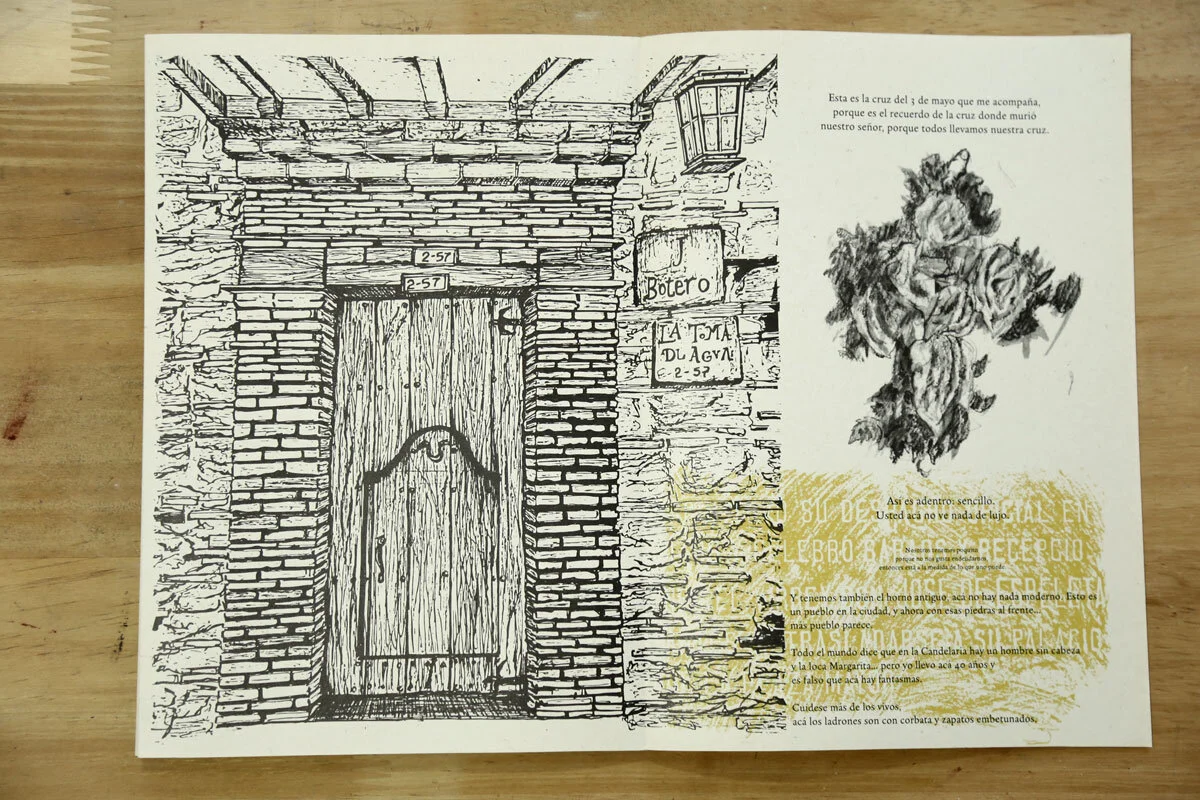 2-57
2-57
J
Botero
LA TOMA
DL AGUA
2-57
Esta es la cruz del 3 de mayo que me acompaña,
porque es el recuerdo de la cruz donde murió
nuestro señor, porque todos llevamos nuestra cruz.
Así es adentro: sencillo.
Usted acá no ve nada de lujo.
Nosotros tenemos poquito
porque no nos gusta endeudarnos,
entonces está a la medida de lo que uno puede
Y tenemos también el horno antiguo, acá no hay nada moderno. Esto es
un pueblo en la ciudad, y ahora con esas piedras al frente...
más pueblo parece.
Todo el mundo dice que en la Candelaria hay un hombre sin cabeza
y la loca Margarita... pero yo llevo acá 40 años y
es falso que acá hay fantasmas.
Cuídese más de los vivos,
acá los ladrones son con corbata y zapatos embetunados.
SU EN
TRASLADARSE A SU PALACIO